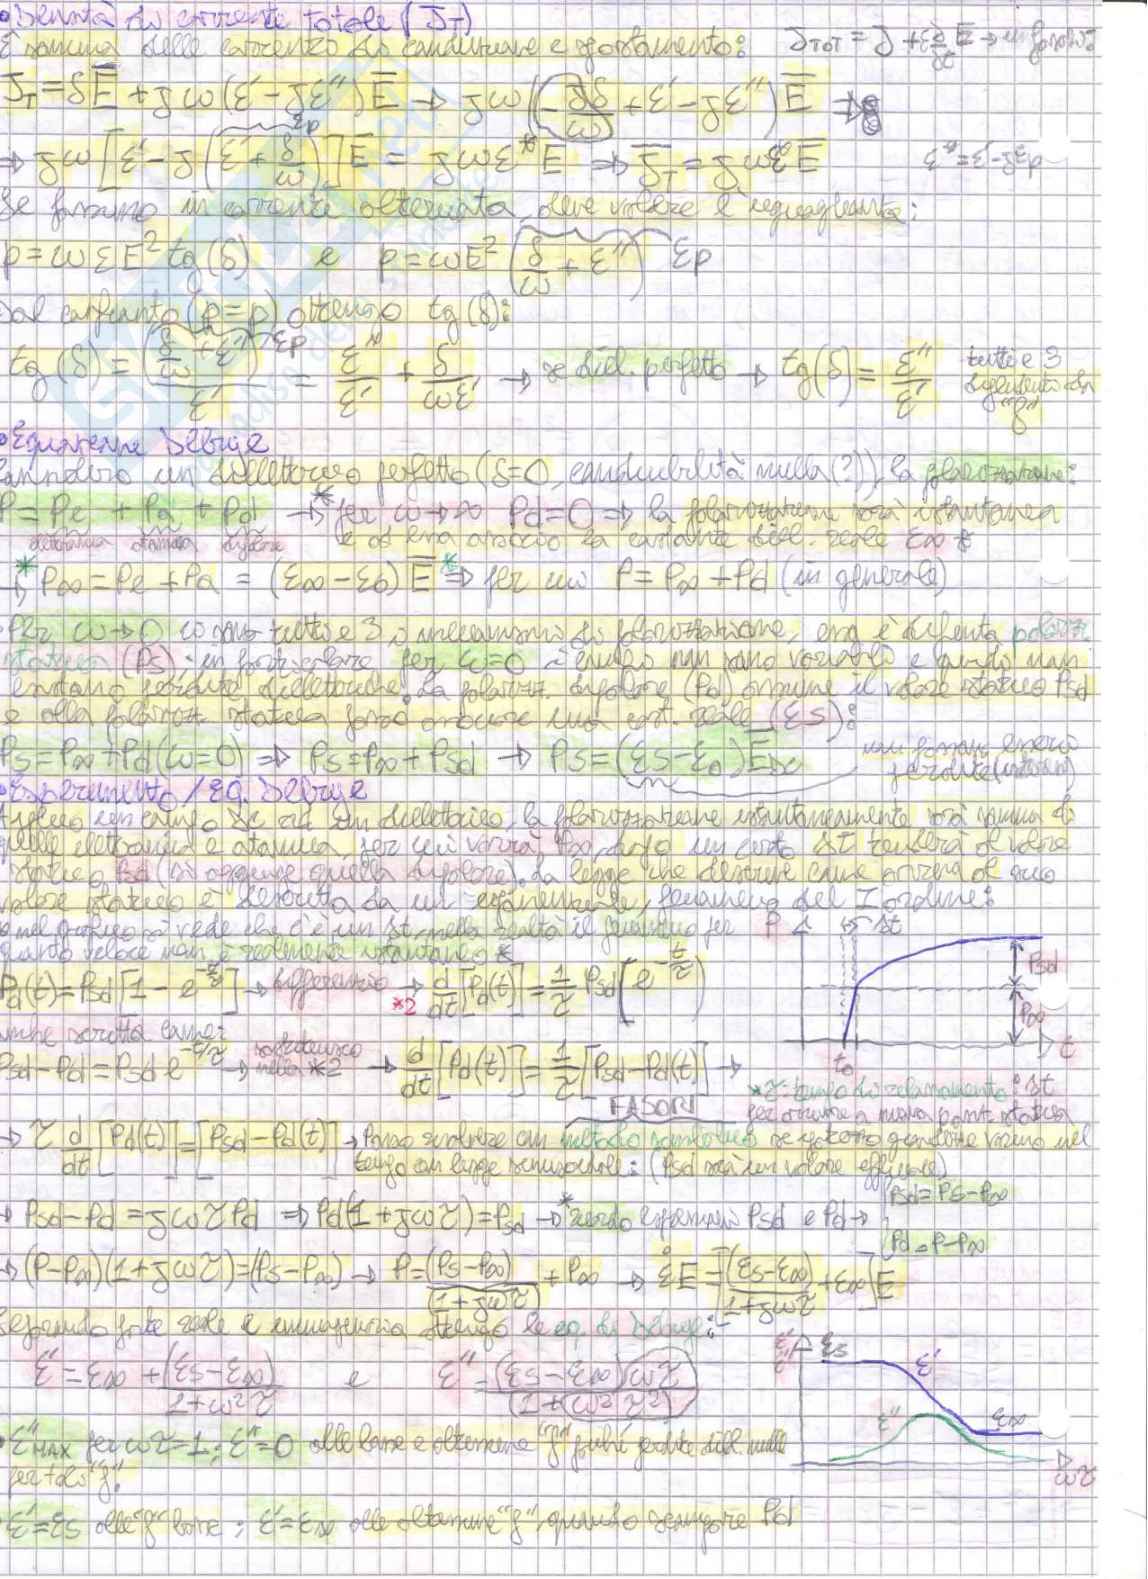 •Densità di corrente totale (J_T)
È somma delle correnti di conduzione e spostamento: J_TOT = J + ε ∂/∂t E → in fasori:
J_T = δE + jω(ε' - jε'')E → jω(-jδ/ω + ε' - jε'')E →
→ jω[ε' - j(ε'' + δ/ω)]E = jωε*E ⇒ J_T = jωεE ε* = ε' - jεp
Se fossimo in corrente alternata, deve valere l'uguaglianza:
p = ωεE² tg(δ) e p = ωE²(δ/ω + ε'') εp
Dal confronto (p=p) ottengo tg(δ):
tg(δ) = (δ/ω + ε'')/ε' εp = ε''/ε' + δ/ωε' → se diel. perfetto → tg(δ) = ε''/ε' tutti e 3 dipendenti da "f"
•Equazione Debye
Considero un dielettrico perfetto (δ=0, conducibilità nulla(?)), la polarizzazione:
P = Pe + Pa + Pd →* per ω→∞ Pd=0 ⇒ la polarizzazione sarà istantanea
elettronica atomica dipolare e ad essa associo la costante diel. reale ε∞ *
*→ P∞ = Pe + Pa = (ε∞ - ε0)E *⇒ per cui P = P∞ + Pd (in generale)
Per ω→0 ci sono tutti e 3 i meccanismi di polarizzazione, ed è definita polarizz.
statica (Ps); in particolare per ω=0 i campi non sono variabili e quindi non
esistono perdite dielettriche. La polarizz. dipolare (Pd) assume il valore statico Psd
e alla polarizz. statica posso associare una cost. reale (εs):
Ps = P∞ + Pd(ω=0) ⇒ Ps = P∞ + Psd → Ps = (εs - ε0)E_DC
•Esperimento / Eq. Debye
Applico un campo DC ad un dielettrico, la polarizzazione istantaneamente sarà somma di
quelle elettronica e atomica, per cui varrà P∞, dopo un certo Δt tenderà al valore
statico Psd (si aggiunge quella dipolare). La legge che descrive come arriva al suo
valore statico è descritta da un esponenziale, fenomeno del I ordine:
nel grafico si vede che c'è un Δt, nella realtà il fenomeno per P Δt
quanto veloce non è realmente istantaneo *
Pd(t) = Psd[1 - e^(-t/τ)] → differenzio *2→ d/dt[Pd(t)] = 1/τ Psd(e^(-t/τ)) Psd
P∞
anche scritta come: t0 t
Psd - Pd = Psd e^(-t/τ) → sostituisco nella *2 → d/dt[Pd(t)] = 1/τ[Psd - Pd(t)] →
*τ: tempo di rilassamento: Δt
FASORI
→ τ d/dt[Pd(t)] = [Psd - Pd(t)] → Posso scrivere con metodo simbolico se queste grandezze variano nel
tempo con legge sinusoidale: (Psd sarà un valore efficace)
→ Psd - Pd = jωτPd ⇒ Pd(1 + jωτ) = Psd →* Psd = Ps - P∞
Pd = P - P∞
→ (P - P∞)(1 + jωτ) = (Ps - P∞) → P = (Ps - P∞)/(1 + jωτ) + P∞ → εE = [(εs - ε∞)/(1 + jωτ) + ε∞]E
Separando parte reale e immaginaria ottengo le eq. di Debye:
ε' = ε∞ + (εs - ε∞)/1 + ω²τ² e ε'' = (εs - ε∞)ωτ/(1 + ω²τ²)
εs ε' ε'' ε∞ ωτ
•ε''MAX per ωτ=1; ε''=0 alle basse e altissime "f"
•ε'=εs alle "f" basse; ε'=ε∞ alle altissime "f", quando scompare Pd